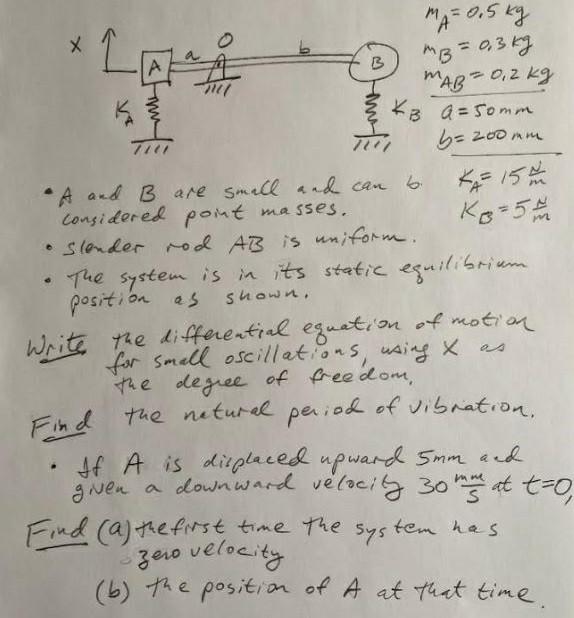 m_A = 0,5 kg
m_B = 0,3 kg
m_AB = 0,2 kg
a = 50 mm
b = 200 mm
K_A = 15 N/m
K_B = 5 N/m
X
A
a
O
b
B
K_A
K_B
• A and B are small and can b
considered point masses.
• slender rod AB is uniform.
• The system is in its static equilibrium
position as shown.
Write the differential equation of motion
for small oscillations, using X as
the degree of freedom,
Find the natural period of vibration.
• If A is displaced upward 5mm and
given a downward velocity 30 mm/s at t=0,
Find (a) the first time the system has
zero velocity
(b) the position of A at that time.